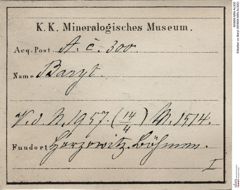 K. K. Mineralogisches Museum.
Acq. Post. A. c. 300.
Name Baryt.
V. d. N. 1957. (14/4) M. 1514.
Fundort Horzowitz, Böhmen.
I